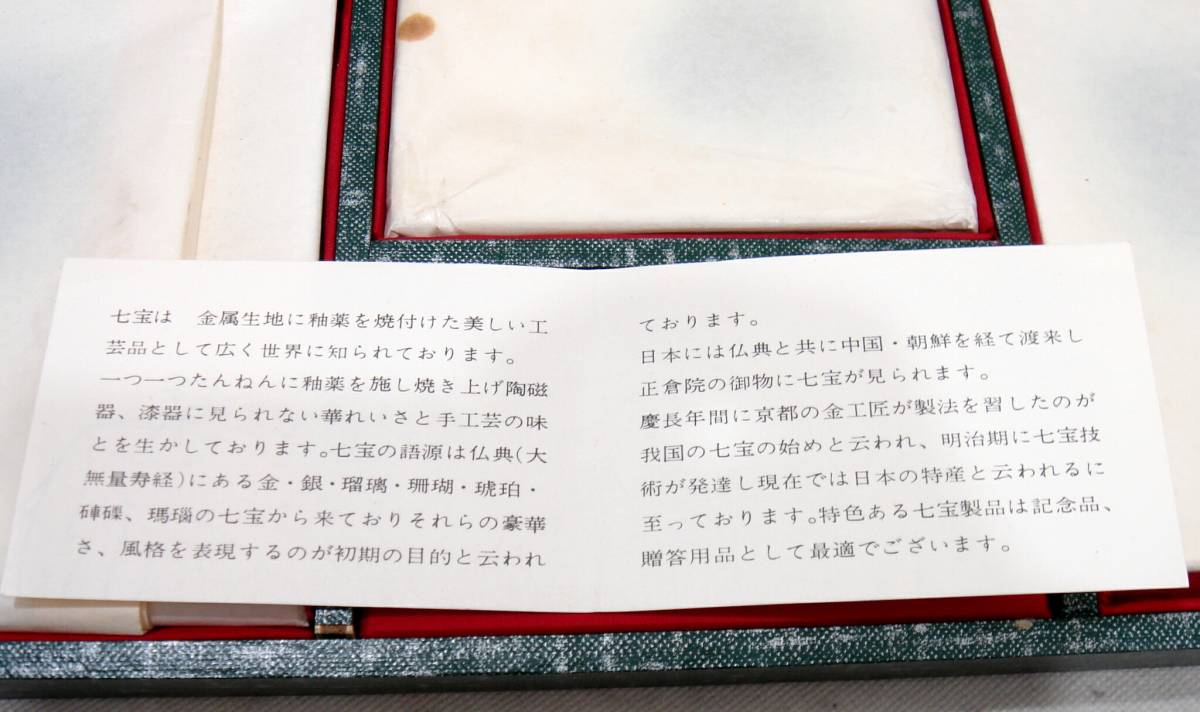 七宝は　金属生地に釉薬を焼付けた美しい工
芸品として広く世界に知られております。
一つ一つたんねんに釉薬を施し焼き上げ陶磁
器、漆器に見られない華れいさと手工芸の味
とを生かしております。七宝の語源は仏典(大
無量寿経)にある金・銀・瑠璃・珊瑚・琥珀・
硨磲、瑪瑙の七宝から来ておりそれらの豪華
さ、風格を表現するのが初期の目的と云われ
ております。
日本には仏典と共に中国・朝鮮を経て渡来し
正倉院の御物に七宝が見られます。
慶長年間に京都の金工匠が製法を習したのが
我国の七宝の始めと云われ、明治期に七宝技
術が発達し現在では日本の特産と云われるに
至っております。特色ある七宝製品は記念品、
贈答用品として最適でございます。